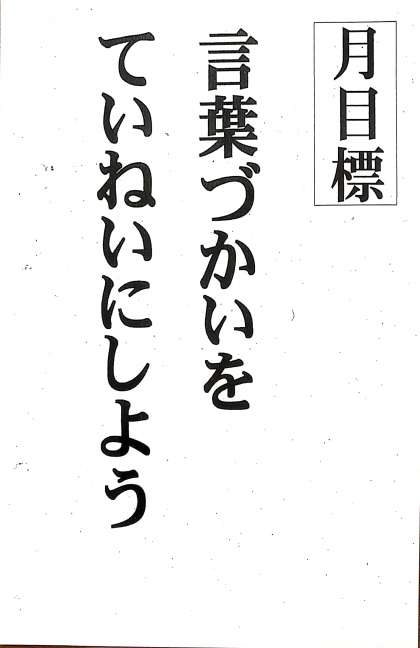 月目標
言葉づかいを
ていねいにしよう